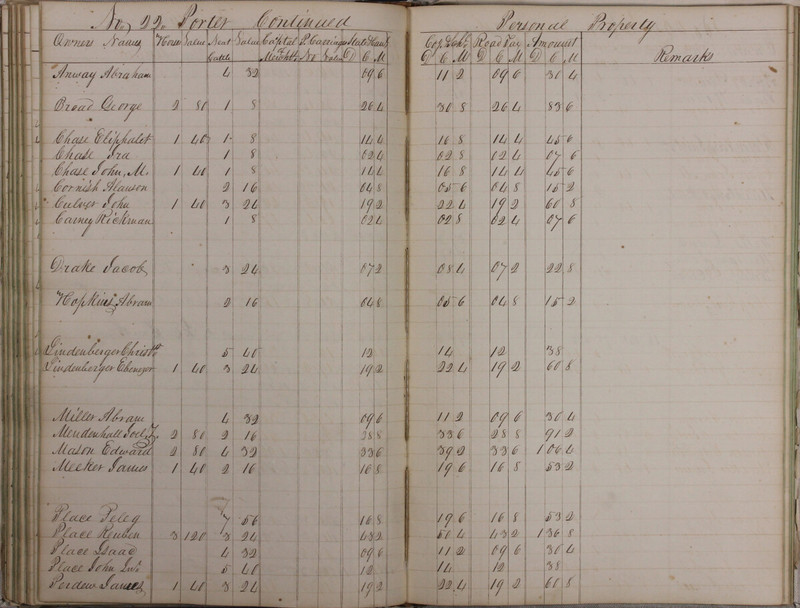 No, 22. Porter Continued Personal Property
Owners Names Horses Value Neat Cattle Value Capital Mercht's P. Carriages No Value State & Canal D C M Co. & Sch'l D C M Road Tax D C M Amount D C M Remarks
Anway Abraham 4 32 09 6 11 2 09 6 30 4
Broad George 2 80 1 8 26 4 30 8 26 4 83 6
Chase Eliphalet 1 40 1 8 14 4 16 8 14 4 45 6
Chase Ira 1 8 02 4 02 8 02 4 07 6
Chase John, M. 1 40 1 8 14 4 16 8 14 4 45 6
Cornish Alanson 2 16 04 8 05 6 04 8 15 2
Culver John 1 40 3 24 19 2 22 4 19 2 60 8
Carney Hickman 1 8 02 4 02 8 02 4 07 6
Drake Jacob 3 24 07 2 08 4 07 2 22 8
Hopkins Abram 2 16 04 8 05 6 04 8 15 2
Lindenberger Christ. 5 40 12 14 12 38
Lindenberger Ebenezer 1 40 3 24 19 2 22 4 19 2 60 8
Miller Abram 4 32 09 6 11 2 09 6 30 4
Mendenhall Joel Z. 2 80 2 16 28 8 33 6 28 8 91 2
Mason Edward 2 80 4 32 33 6 39 2 33 6 1 06 4
Meeker James 1 40 2 16 16 8 19 6 16 8 53 2
Place Peleg 7 56 16 8 19 6 16 8 53 2
Place Reuben 3 120 3 24 43 2 50 4 43 2 1 36 8
Place Isaac 4 32 09 6 11 2 09 6 30 4
Place John 5 40 12 14 12 38
Perdew James 1 40 3 24 19 2 22 4 19 2 60 8